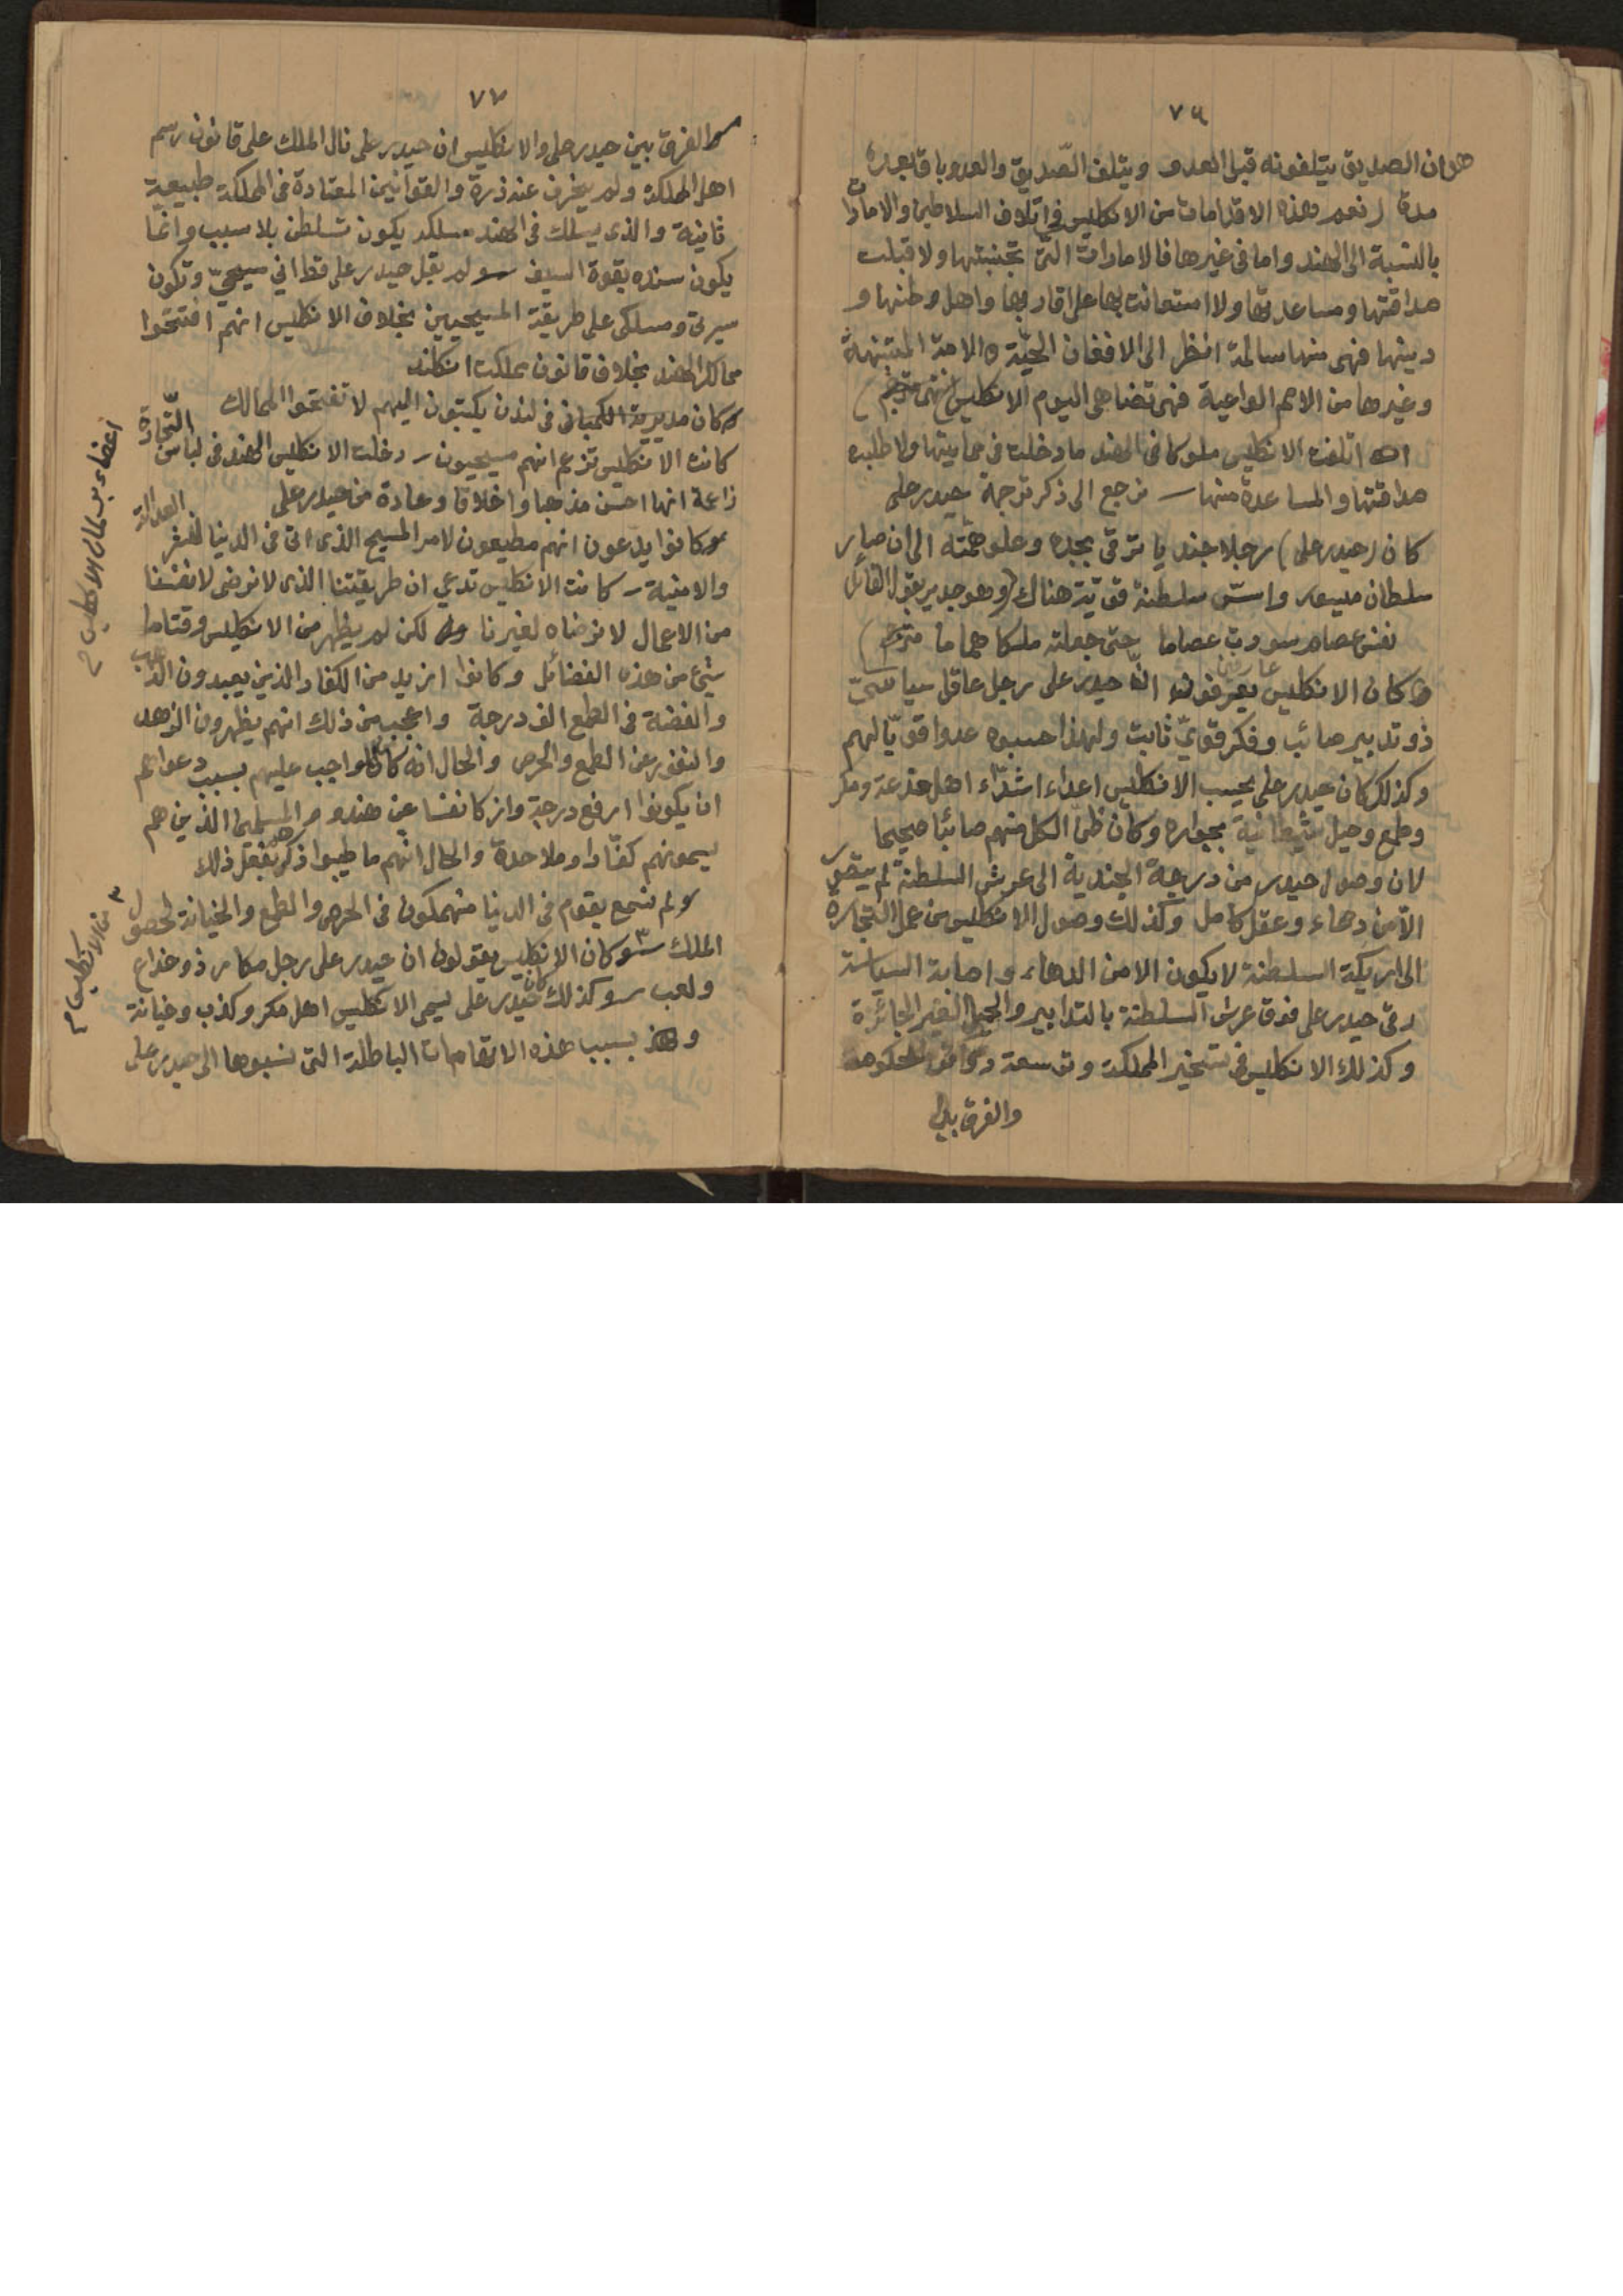 ٧٦
هو ان الصديق يتلفونه قبل العدو ويتلف الصّديق والعدو باق بعده
مدة (نعم وهذه الاقدامات من الانكليس في اتلاف السلاطين والامارات
بالنسبة الى الهند واما في غيرها فالامارات التي تجنبتها ولا قبلت
صداقتها ومساعدتها ولا استعانت بها على اقاربها واهل وطنها و
دينها فهي منها سالمة انظر الى الافغان الحيّة والامة المتنبهة
وغيرها من الامم الواعية فهي تضاهي اليوم الانكليس انتهى مترجم)
اتلفت الانكليس ملوكا في الهند ما دخلت في حمايتها ولا طلبه
صداقتها والمساعدة منها ــ نرجع الى ذكر ترجمة حيدر على
كان (حيدر على) رجلا جنديا ترقى بجده وعلو همّته الى ان صار
سلطان ميسور واسّس سلطنة قويّة هناك (وهو جدير بقول القائل
نفس عصام سودت عصاما حتى جعلته ملكا هماما مترجم)
وكان الانكليس عارفين انّ حيدر على رجل عاقل سياسيّ
ذو تدبير صائب وفكر قويّ ثابت ولهذا حسبوه عدوا قويّا لهم
وكذلك كان حيدر على يحسب الانكليس اعداء اشدّاء اهل خدعة ومكر
وطمع وحيل شيطانية بجواره وكان ظن الكل منهم صائبا صحيحا
لان وصول حيدر من درجة الجندية الى عرش السلطنة لم يتيسر
الاّ من دهاء وعقل كامل وكذلك وصول الانكليس من عمل التجاره
الى اريكة السلطنة لا يكون الا من الدهاء واصابة السياسة
رقى حيدر على فوق عرش السلطنة بالتدابير والحيل الغير الجائزة
وكذلك الانكليس في تسخير المملكة وتوسعة دوائر الحكومة
والفرق بين
٧٧
والفرق بين حيدر على والانكليس ان حيدر على نال الملك على قانون رسم
اهل المملكة ولم ينحرف عنه ذرة والقوانين المعتادة في المملكة طبيعية
ثانية والذي يسلك في الهند مسلكه يكون تسلطن بلا سبب وانما
يكون سنده بقوة السيف ــ ولم يقل حيدر على قط اني مسيحيّ وتكون
سيرتي ومسلكي على طريقة المسيحيين بخلاف الانكليس انهم افتتحوا
ممالك الهند بخلاف قانون مملكت انكلند
وكان مديرية الكمباني في لندن يكتبون اليهم لا تفتحوا الممالك
كانت الانكليس تزعم انهم مسيحيون ــ دخلت الانكليس الهند في لباس التّجارة
زاعمة انها احسن مذهبا واخلاقا وعادة من حيدر على
وكانوا يدعون انهم مطيعون لامر المسيح الذي اتى في الدنيا لنشر العدالة
والامنية ــ كانت الانكليس تدعي ان طريقتنا الذي لا نرضى لانفسنا
من الاعمال لا نرضاه لغيرنا لكن لم يظهر من الانكليس وقتاما
شيء من هذه الفضائل وكانوا ازيد من الكفار الذين يعبدون الذهب
والفضة في الطمع الف درجة واعجب من ذلك انهم يظهرون الزهد
والنفور عن الطمع والحرص والحال انه كان الواجب عليهم بسبب دعواهم
ان يكونوا ارفع درجة وازكا نفسا عن هندو والمسلمين الذين هم
يسمونهم كفّارا وملاحدة والحال انهم ما طيبوا ذكرهم بفعل ذلك
ولم نسمع بقوم في الدنيا منهمكون في الحرص والطمع والخيانة لحصول
الملك ٣ وكان الانكليس يقولون ان حيدر على رجل مكار ذو خداع
ولعب ــ وكذلك كان حيدر على يسمى الانكليس اهل مكر وكذب وخيانة
بسبب هذه الاتهامات الباطلة التي نسبوها الى حيدر على
٣ من الانكليس م